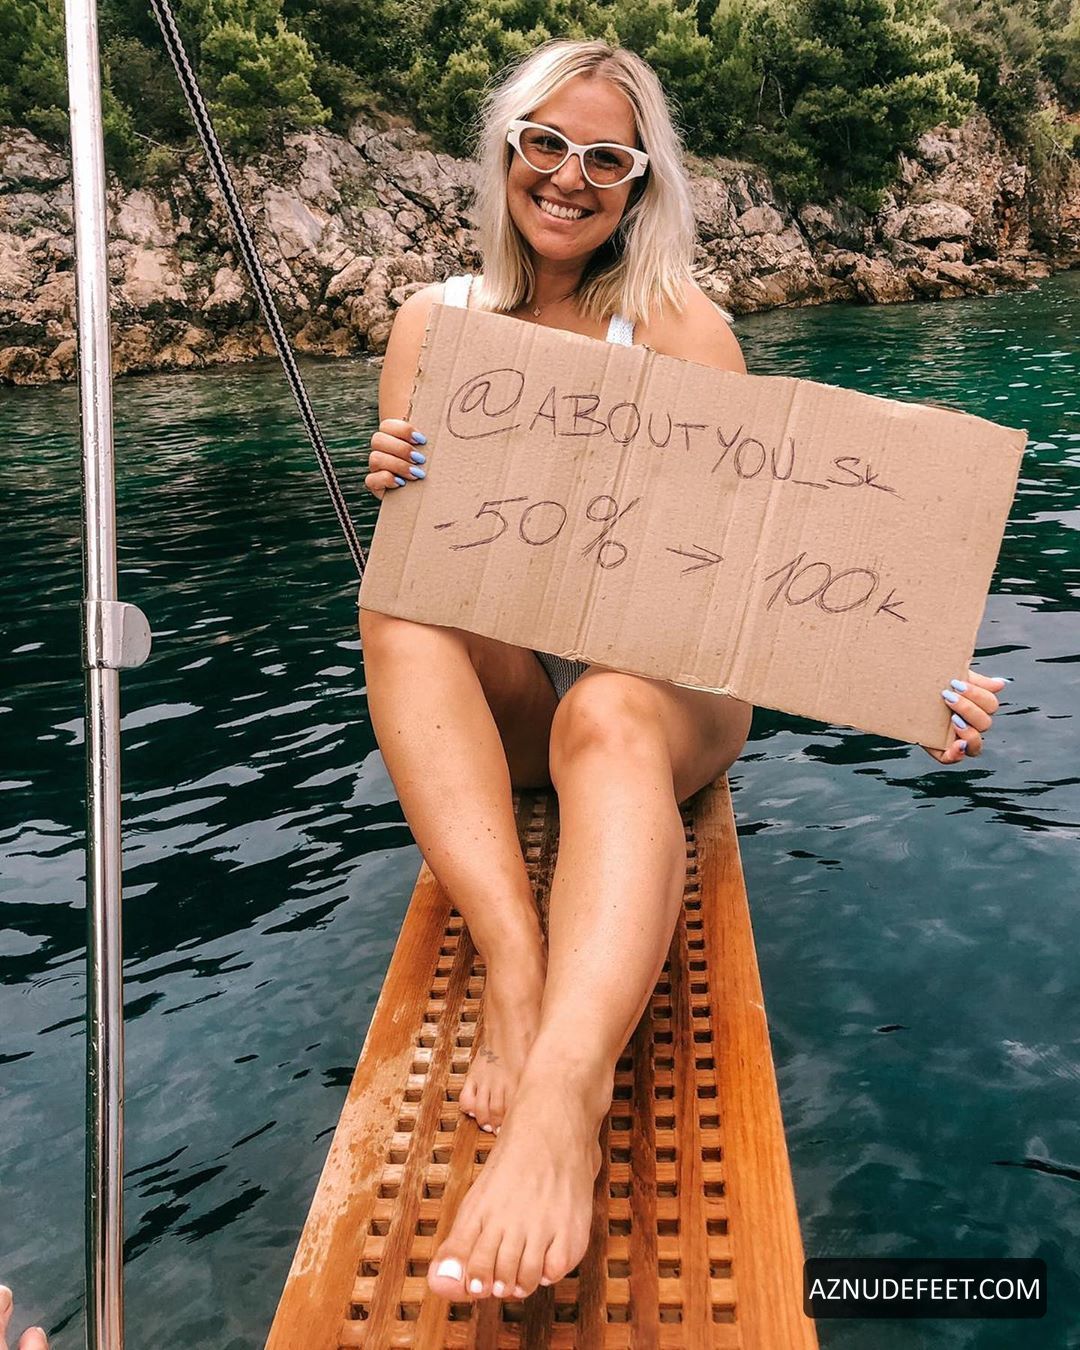 @ABOUTYOU_Sk
-50% → 100k
AZNUDEFEET.COM